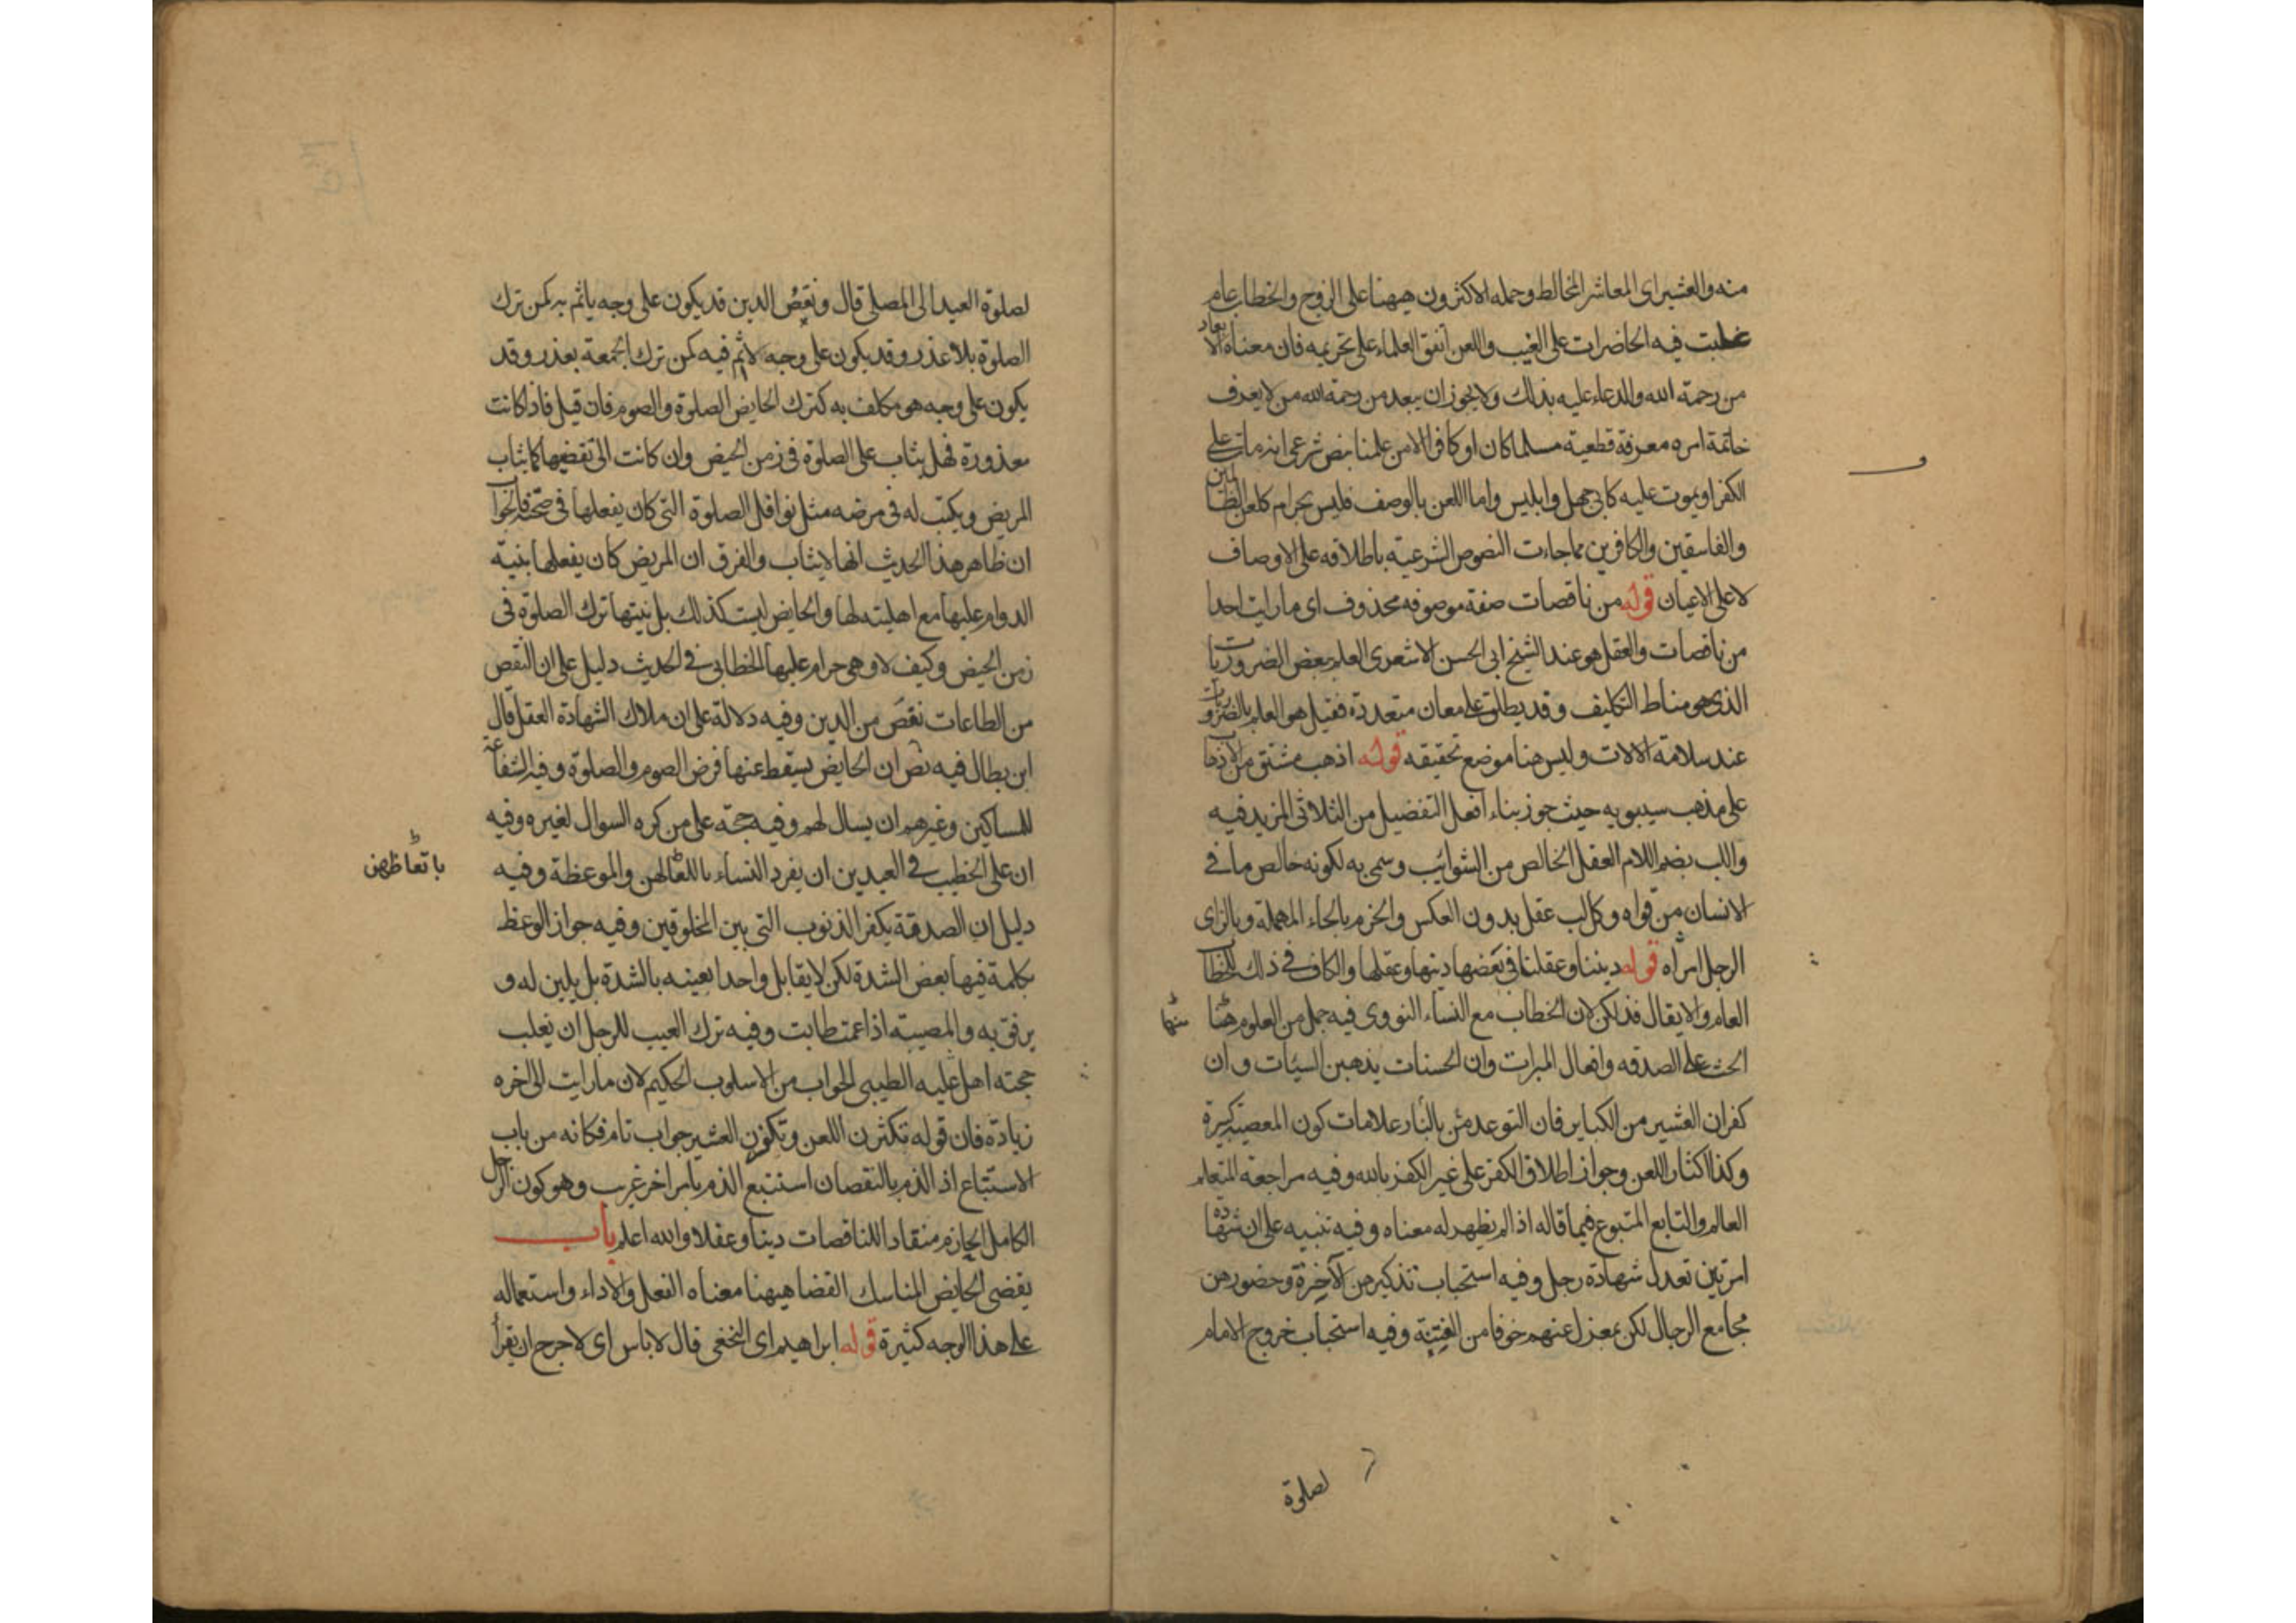 منه والعشير اى المعاشر المخالط وحمله الاكثرون هيهنا على الزوج والخطاب عام
غلبت فيه الحاضرات على الغيب واللعن اتفق العلماء على تحريمه فان معناه الابعاد
من رحمة الله والدعاء عليه بذلك ولا يجوز ان يبعد من رحمة الله من لا يعرف
خاتمة امره معرفة قطعية مسلما كان او كافرا الا من علمنا بنص شرعى انه مات على
الكفر او يموت عليه كابى جهل وابليس واما اللعن بالوصف فليس بحرام كلعن الظالمين
والفاسقين والكافرين مما جاءت النصوص الشرعية باطلاقه على الاوصاف
لا على الاعيان قوله من ناقصات صفة موصوفه محذوف اى ما رايت احدا
من ناقصات والعقل هو عند الشيخ ابى الحسن الاشعرى العلم ببعض الضروريات
الذى هو مناط التكليف وقد يطلق على معان متعددة فقيل هو العلم بالضروريات
عند سلامة الالات وليس هنا موضع تحقيقه قوله اذهب مشتق من الاذهاب
على مذهب سيبويه حيث جوز بناء افعل التفضيل من الثلاثى المزيد فيه
واللب بضم اللام العقل الخالص من الشوائب وسمى به لكونه خالص ما فى
الانسان من قواه وكل لب عقل بدون العكس والحزم بالحاء المهملة وبالزاى
الرجل امرأه قوله ديننا وعقلنا فى بعضها دينها وعقلها والكاف فى ذلك للخطاب
العام والا يقال فذلكن لان الخطاب مع النساء النووى فيه جمل من العلوم هنا
منها
الحث على الصدقه وافعال المبرات وان الحسنات يذهبن السيئات وان
كفران العشير من الكباير فان التوعد من بالنار علامات كون المعصية كبيرة
وكذا اكثار اللعن وجواز اطلاق الكفر على غير الكفر بالله وفيه مراجعة المتعلم
العالم والتابع المتبوع فيما قاله اذا لم يظهر له معناه وفيه تنبيه على ان شهادة
امرتين تعدل شهادة رجل وفيه استحباب تذكيرهن الآخرة وحضورهن
مجامع الرجال لكن بمعزل عنهم خوفا من الفتنة وفيه استحباب خروج الامام
لصلوة
لصلوة العيد الى المصلى قال ونقص الدين قد يكون على وجه ياثم به كمن ترك
الصلوة بلا عذر وقد يكون على وجه لا اثم فيه كمن ترك الجمعة بعذر وقد
يكون على وجه هو مكلف به كترك الحايض الصلوة والصوم فان قيل فاذا كانت
معذورة فهل يثاب على الصلوة فى زمن الحيض وان كانت لا تقضيها كما يثاب
المريض ويكتب له فى مرضه مثل نوافل الصلوة التى كان يفعلها فى صحته فالجواب
ان ظاهر هذا الحديث انها لا يثاب والفرق ان المريض كان يفعلها بنية
الدوام عليها مع اهليته لها والحايض ليست كذلك بل نيتها ترك الصلوة فى
زمن الحيض وكيف لا وهى حرام عليها الخطابى فى الحديث دليل على ان النقص
من الطاعات نقص من الدين وفيه دلالة على ان ملاك الشهادة العقل قال
ابن بطال فيه نص ان الحايض يسقط عنها فرض الصوم والصلوة وفيه الشفاعة
للمساكين وغيرهم ان يسال لهم وفيه حجة على من كره السوال لغيره وفيه
ان على الخطيب فى العيدين ان يفرد النساء باللقاء لهن والموعظة وفيه
دليل ان الصدقة يكفر الذنوب التى بين المخلوقين وفيه جواز الوعظ
بكلمة فيها بعض الشدة لكن لا يقابل واحدا بعينه بالشدة بل يلين له و
يرفق به والمصيبة اذا عمت طابت وفيه ترك العيب للرجل ان يغلب
محبته اهل عليه الطيبى الجواب من الاسلوب الحكيم لان ما رايت الى اخره
زيادة فان قوله تكثرن اللعن وتكفرن العشير جواب تام فكانه من باب
الاستتباع اذ الذم بالنقصان استتبع الذم بامر اخر غريب وهو كون الرجل
الكامل الحازم منقادا للناقصات دينا وعقلا والله اعلم باب
يقضى الحايض المناسك القضا هيهنا معناه الفعل والاداء واستعماله
على هذا الوجه كثيرة قوله ابراهيم اى النخعى قال لا باس اى لا حرج ان يقرأ